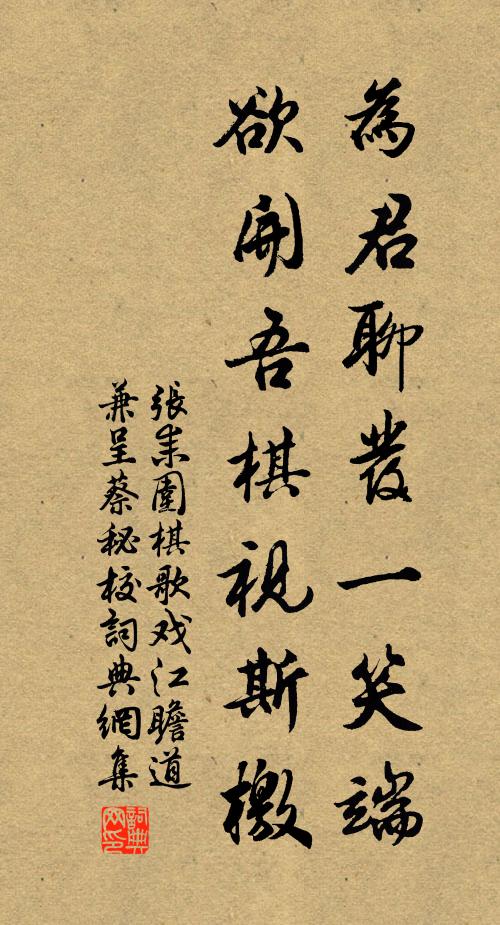 為君聊發一笑端
欲開吾棋視斯檄
張耒圍棋歌戏江瞻道
兼呈蔡秘校詞典網集
詞典
网印